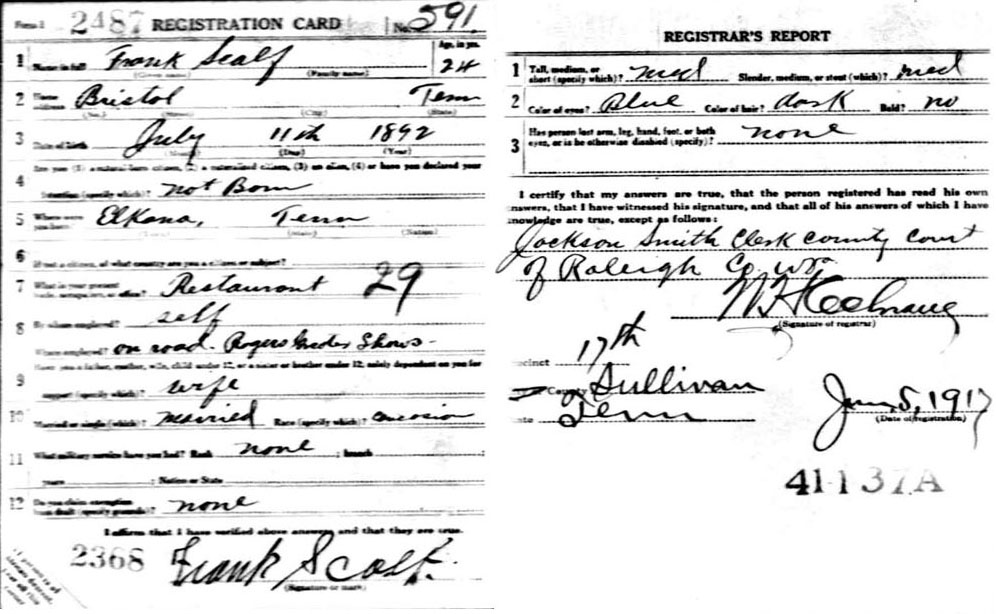 Form 1 2487 REGISTRATION CARD No. 591
1 Name in full Frank Scalf Age, in yrs. 24
(Given name) (Family name)
2 Home address Bristol Tenn
(No.) (Street) (City) (State)
3 Date of birth July 11th 1892
(Month) (Day) (Year)
4 Are you (1) a natural-born citizen, (2) a naturalized citizen, (3) an alien, (4) or have you declared your
intention (specify which)? nat Born
5 Where were you born? Elkana, Tenn
(Town) (State) (Nation)
6 If not a citizen, of what country are you a citizen or subject?
7 What is your present trade, occupation, or office? Restaurant 29
8 By whom employed? self
Where employed? on road - Rogers Shows -
9 Have you a father, mother, wife, child under 12, or a sister or brother under 12, solely dependent on you for
support (specify which)? wife
10 Married or single (which)? married Race (specify which)?
11 What military service have you had? Rank none ; branch
years ; Nation or State
12 Do you claim exemption from draft (specify grounds)? none
I affirm that I have verified above answers and that they are true.
2368 Frank Scalf.
(Signature or mark)
REGISTRAR'S REPORT
1 Tall, medium, or short (specify which)? med Slender, medium, or stout (which)? med
2 Color of eyes? Blue Color of hair? dark Bald? no
3 Has person lost arm, leg, hand, foot, or both
eyes, or is he otherwise disabled (specify)? none
I certify that my answers are true, that the person registered has read his own
answers, that I have witnessed his signature, and that all of his answers of which I have
knowledge are true, except as follows:
Jackson Smith Clerk County Court
of Raleigh Co. W Va
(Signature of registrar)
Precinct 17th
County Sullivan
State Tenn June 5, 1917
(Date of registration)
41-1 37.A